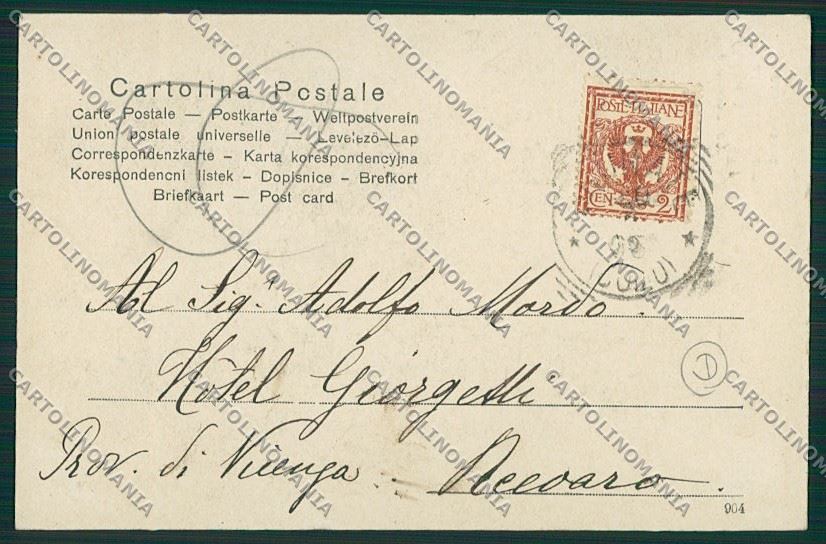 Cartolina Postale
Carte Postale — Postkarte — Weltpostverein
Union postale universelle — Levelező-Lap
Correspondenzkarte - Karta korespondencyjna
Korespondencni listek - Dopisnice - Brefkort
Briefkaart — Post card
POSTE ITALIANE
CEN 2
(CORFÙ)
Al Sig. Adolfo Mordo
Hôtel Giorgetti
Prov. di Vicenza Recoaro.
D
904
CARTOLINOMANIA